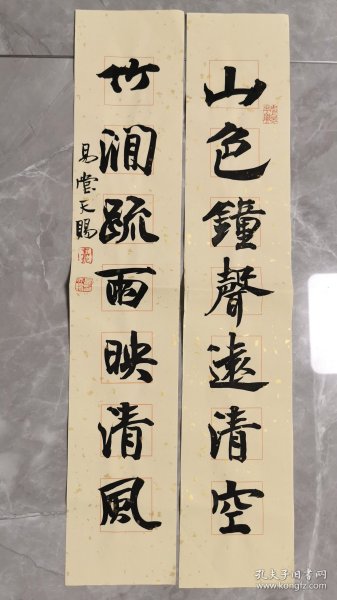 山色鐘聲遠清空
竹澗疏雨映清風
易堂天賜
孔夫子旧书网
www.kongfz.com